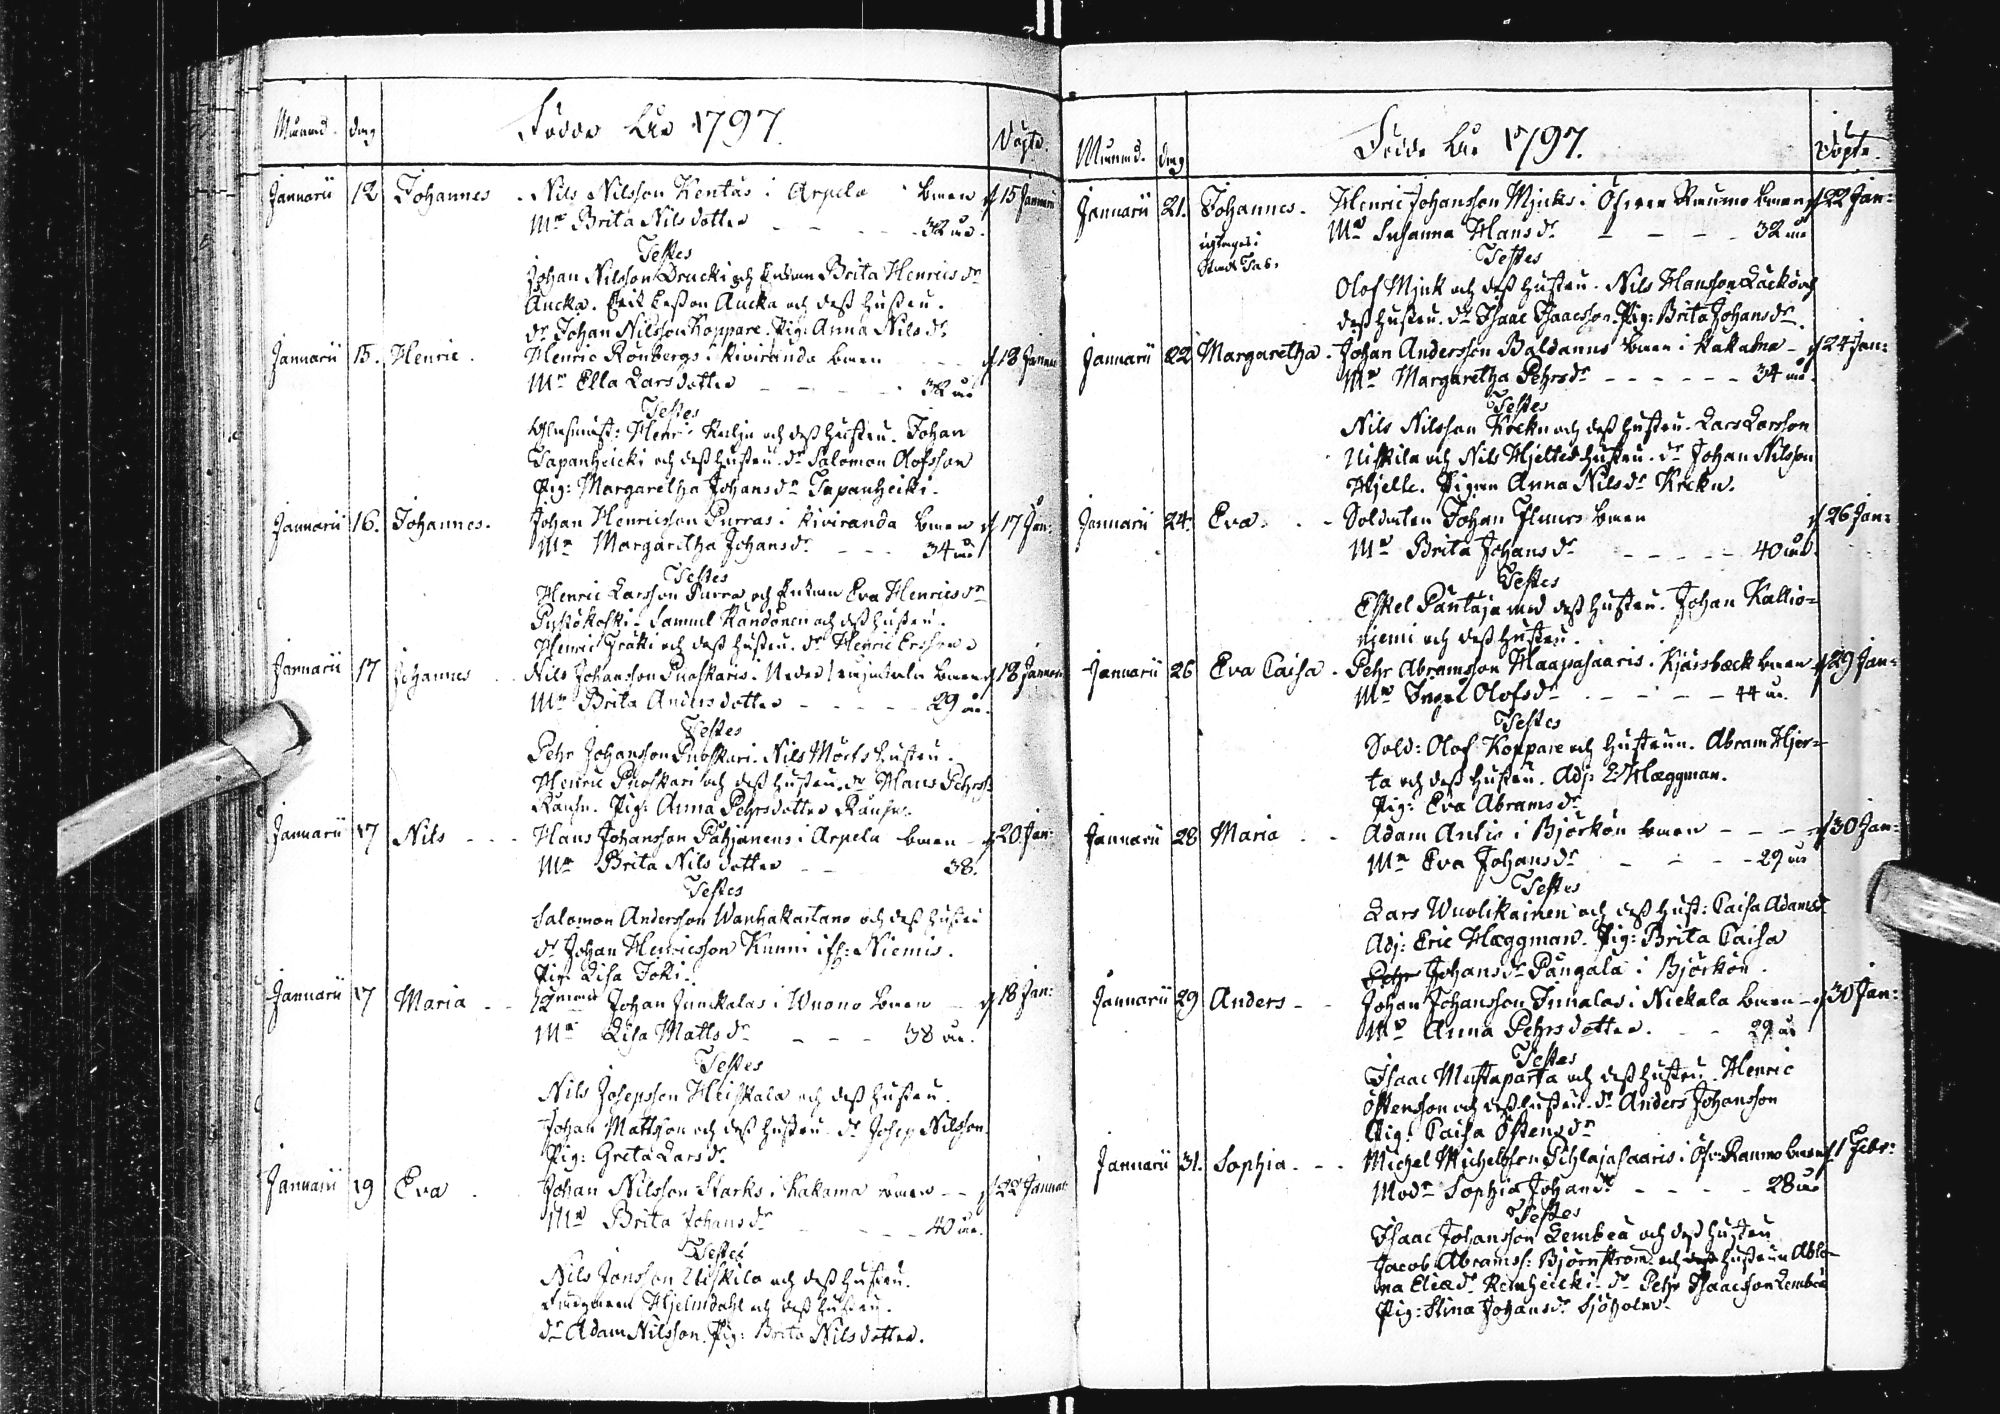 Månad. dag Födde Åhr 1797. Döpte.
Januarii 12 Johannes Nils Nilsson Kentäs i Arpela barn d 15 Januarii
Mr Brita Nils dotter 32 år.
Testes
Johan Nilsson Drucki och Enkan Brita Henrics dr
Aucka. Erik Ersson Aucka och dess hustru.
dr Johan Nilsson Koppare. Pig: Anna Nils dr
Januarii 15. Henric. Henric Rönbergs i Kiviranda barn d 18 Januarii
Mr Ella Lars dotter 32 år
Testes
Henr: och dess hustru. Johan
Tapanheicki och dess hustru. dr Salomon Olofsson
Pig: Margaretha Johans dr Tapanheicki.
Januarii 16. Johannes. Johan Henricsson Purras i Kiviranda barn d 17 Jan:
Mr Margaretha Johans dr 34 år
Testes
Henric Larsson Purra och Enkan Eva Henrics dr
Samuel Kandonen och dess hustru.
Henric och dess hustru. dr Henric Ersson
Januarii 17 Johannes Nils Johansson Puoskaris i Neder barn d 18 Januarii
Mr Brita Anders dotter 29 år.
Testes
Pehr Johansson Puoskari. Nils Mörts hustru.
Henric Puoskari och dess hustru. dr Hans Pehrss:
Pig: Anna Pehrs dotter
Januarii 17 Nils Hans Johansson Påhjanens i Arpela barn d 20 Jan:
Mr Brita Nils dotter 38.
Testes
Salomon Andersson Wanhakartano och dess hustru
dr Johan Henricsson Kunni Niemis.
Pig: Lisa Joki.
Januarii 17 Maria Johan Junckalas i Wuono barn d 18 Jan:
Mr Lisa Matts dr 38 år.
Testes
Nils Josepsson Heiskala och dess hustru.
Johan Mattsson och dess hustru. dr Josep Nilsson
Pig: Greta Lars dr
Januarii 19 Eva Johan Nilsson Starks i Kakama barn d 22 Januar
Mr Brita Johans dr 40 år.
Testes
Nils Jönsson Uiskila och dess hustru.
Hjelmdahl och dess hustru.
dr Adam Nilsson. Pig: Brita Nils dotter.
Månad. dag Födde Åhr 1797. Döpte.
Januarii 21. Johannes. Henric Johansson Mjuks i Öfver Raumo barn d 22 Jan:
Mr Susanna Hans dr 32 år
Testes
Olof Mjuk och dess hustru. Nils Hansson Lackö och
dess hustru. dr Isaac Isaacsson. Pig: Brita Johans dr.
Januarii 22 Margaretha. Johan Andersson Baldanus barn i Kakama d 24 Jan:
Mr Margaretha Pehrs dr 34 år.
Testes
Nils Nilsson Krekn och dess hustru. Lars Larsson
Uiskila och Nils Hjeltes hustru. dr Johan Nilsson
Hjelte. Pigan Anna Nils dr Krekn.
Januarii 24. Eva. Soldaten Johan barn d 26 Jan:
Mr Brita Johans dr 40 år.
Testes
Eskel Pantaja med dess hustru. Johan Kallio=
niemi och dess hustru.
Januarii 26 Eva Caisa. Pehr Abramsson Haapasaaris i Kjärsbäck barn d 29 Jan:
Mr Ingel Olofs dr 44 år.
Testes
Sold: Olof Koppare och hustrun. Abram Hjer=
ta och dess hustru. Adj: E: Hæggman.
Pig: Eva Abrams dr
Januarii 28 Maria Adam Antis i Björkön barn d 30 Jan:
Mr Eva Johans dr 29 år
Testes
Lars Wuolikainen och dess hust: Caisa Adams dr
Adj: Eric Hæggman. Pig: Brita Caisa
Johans dr Pängala i Björkön.
Januarii 29 Anders Johan Johansson Innalas i Nickala barn d 30 Jan:
Mr Anna Pehrs dotter. 29 år
Testes
Isaac Mustaparta och dess hustru. Henric
Östensson och dess hustru. dr Anders Johansson
Pig: Caisa Östens dr
Januarii 31. Sophia. Michel Michelsson Pihlajasaaris i Öfv: Raumo barn d 1 Febr:
Modr Sophia Johans dr 28 år
Testes
Isaac Johansson Lembea och dess hustru
Jacob Abramss: Björnström och hustrun Abla=
na Elias dr Keinheicki. dr Pehr Isaacsson Lembea
Pig: Stina Johans dr Sjöholm.